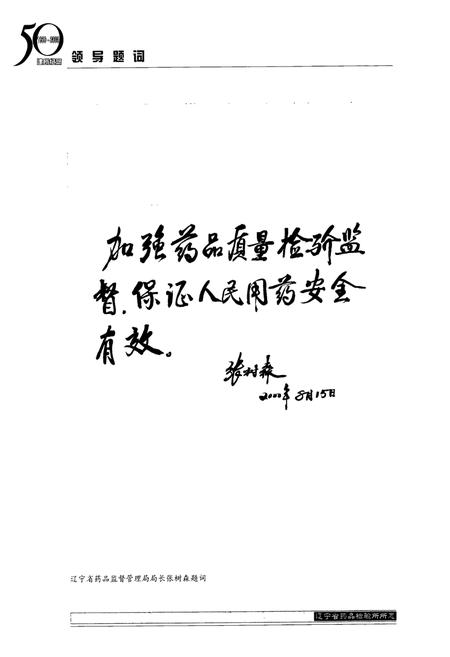 50
领导题词
加强药品质量检验监
督,保证人民用药安全
有效。
张树森
2000年8月15日
辽宁省药品监督管理局局长张树森题词
辽宁省药品检验所所志